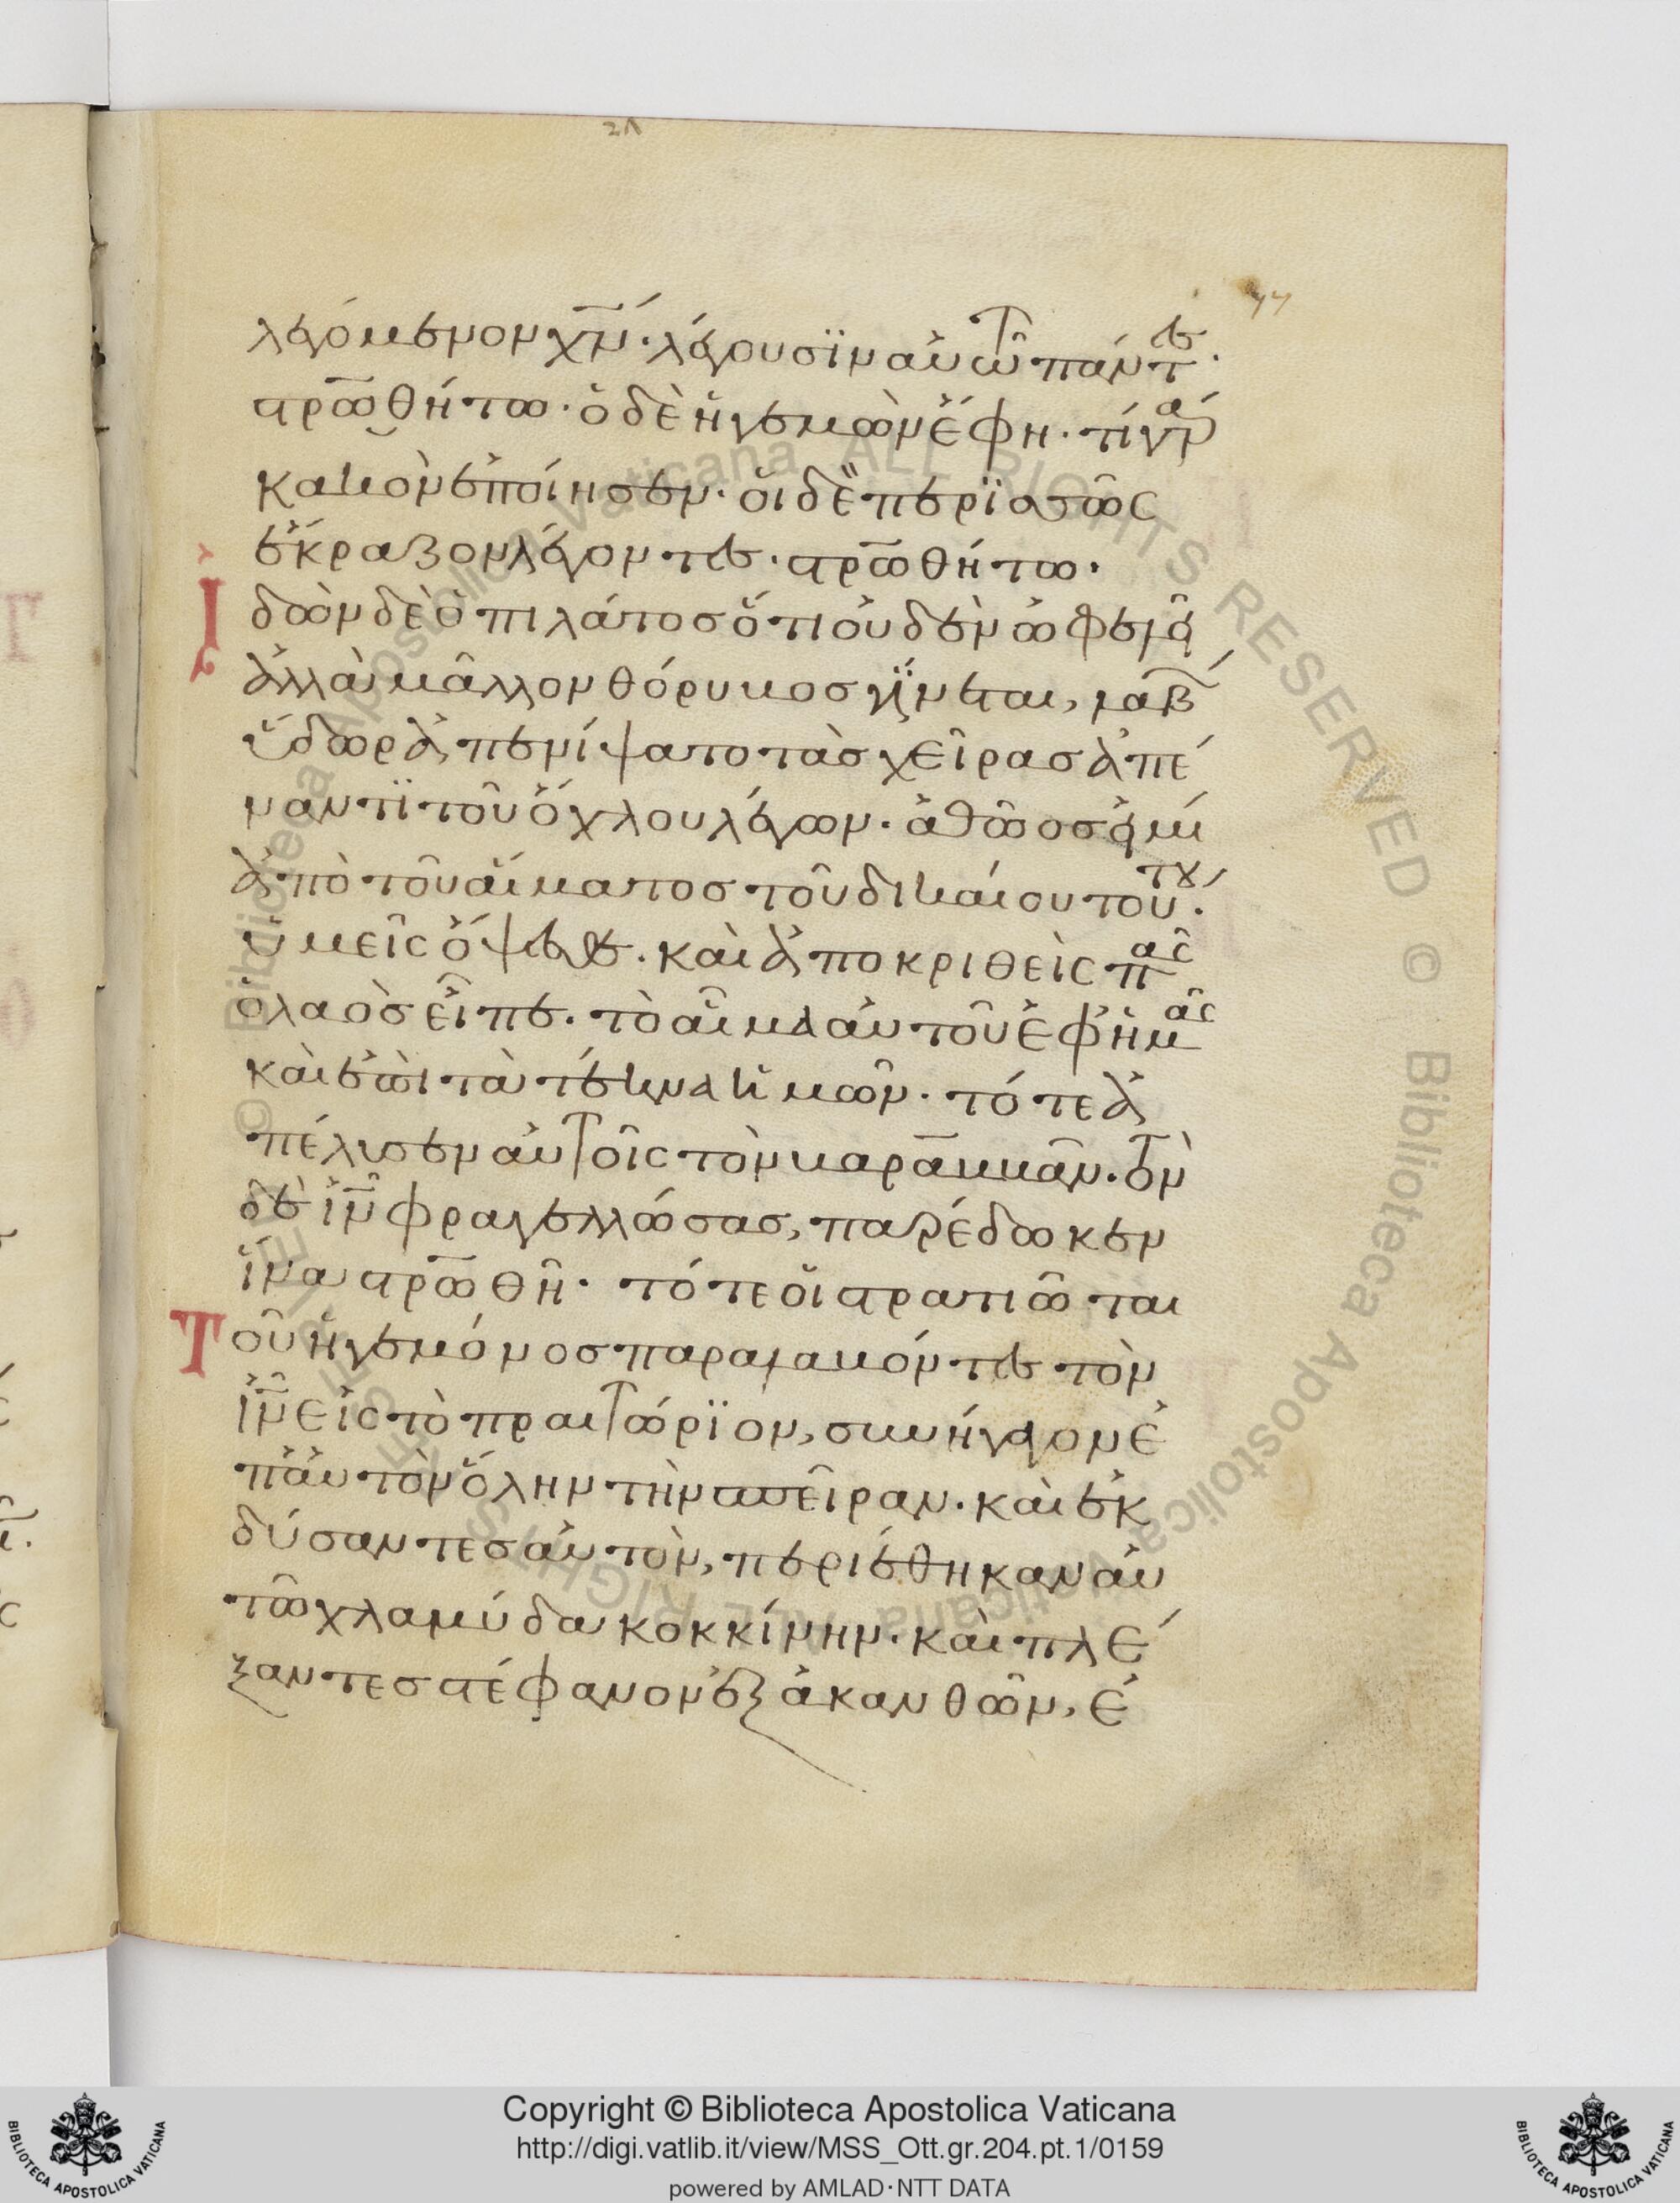 λεγόμενον χν̅· λέγουσϊν αὐτῶ πάντες·
στρω̅θήτω· ὁ δὲ ἡγεμὼν ἔφη· τί γὰρ
κακὸν ἐποίησεν· οἱ δὲ περϊσσῶς
ἔκραζον λέγοντες· στρω̅θήτω·
Ἰδὼν δὲ ὁ πιλάτος ὅτι οὐδὲν ὠφελεῖ
ἀλλὰ μᾶλλον θόρυβος γίνεται, λαβ
ὕδωρ ἀπενίψατο τὰς χεῖρας ἀπέ
ναντϊ τοῦ ὄχλου λέγων· ἀθῶος εἰμι
ἀπὸ τοῦ αἵματος τοῦ δικαίου τούτου·
ὑμεῖς ὄψεσθε· καὶ ἀποκριθεὶς πᾶς
ὁ λαὸς εἶπε· τὸ αἷμα αὐτοῦ ἐφ ἡμᾶς
καὶ ἐπὶ τὰ τέκνα ἡμῶν· τότε ἀ
πέλυσεν αὐτοῖς τὸν βαραββᾶν· τὸν
δὲ ιν̅ φραγελλώσας, παρέδωκεν
ἵνα στρω̅θῆ· τότε οἱ στρατιῶται
Τοῦ ἡγεμόνος παραλαβόντες τὸν
ιν̅ εἰς τὸ πραιτώρϊον, συνήγαγον ἐ
π αὐτὸν ὅλην τὴν σπεῖραν· καὶ ἐκ
δύσαντες αὐτὸν, περιέθηκαν αὐ
τῶ χλαμύδα κοκκίνην· καὶ πλέ
ξαντες στέφανον ἐξ ἀκανθῶν, ἐ
Copyright © Biblioteca Apostolica Vaticana
http://digi.vatlib.it/view/MSS_Ott.gr.204.pt.1/0159
powered by AMLAD·NTT DATA
BIBLIOTECA APOSTOLICA VATICANA
BIBLIOTECA APOSTOLICA VATICANA
© Biblioteca Apostolica Vaticana ALL RIGHTS RESERVED
© Biblioteca Apostolica Vaticana ALL RIGHTS RESERVED